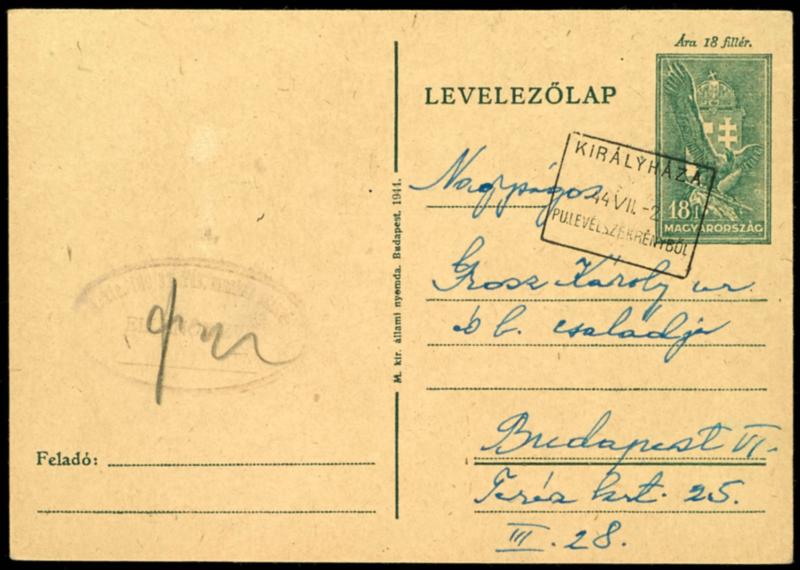 Ára 18 fillér.
LEVELEZŐLAP
18f
MAGYARORSZÁG
KIRÁLYHÁZA
44 VII.-2
PU.LEVÉLSZEKRÉNYBŐL
Nagyságos
Grosz Károly úr
és b. családja
Budapest VI.
Teréz krt. 25.
III. 28.
M. kir. állami nyomda. Budapest, 1944.
Feladó: